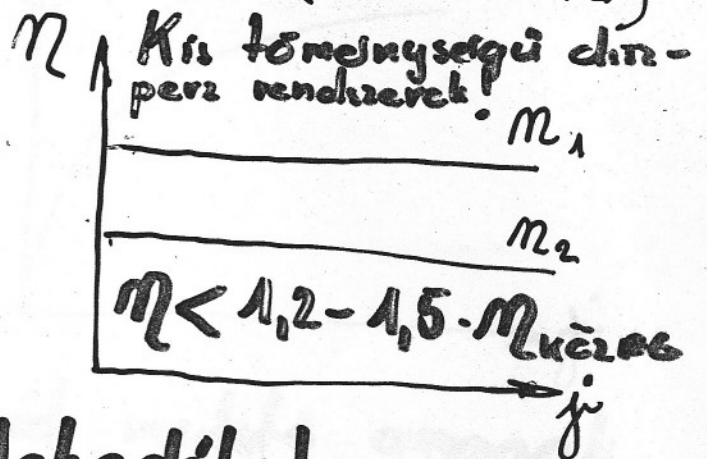 η Kis töménységű disz-
perz rendszerek!
η₁
η₂
η < 1,2 - 1,5 · η közeg
γ̇